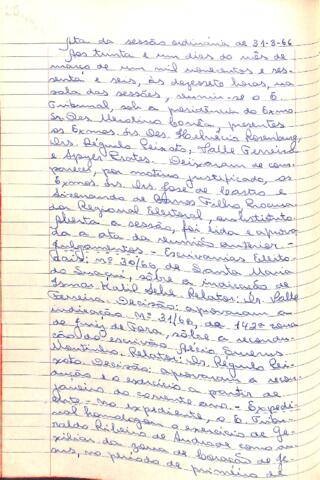 Ata da sessão ordinária de 31-3-66
Aos trinta e um dias do mês de
março de um mil novecentos e ses-
senta e seis, às dezessete horas, na
sala das sessões, reuniu-se o E.
Tribunal, sob a presidência do Exmo
Sr. Des. Merolino Corrêa, presentes
os Exmos. Srs. Des. Helvécio Rosenburg,
Drs. Régulo Peixoto, Valle Ferreira
e Prates. Deixaram de com-
parecer, por motivo justificado, os
Exmos. Srs. Drs. José de Castro e
de Filho, Procura-
dor Regional Eleitoral, substituto.
Aberta a sessão, foi lida e aprova-
da a ata da reunião anterior. -
Julgamentos - Escrivanias Eleito-
rais: nº 30/66, de Santa Maria
do Suaçuí, sôbre a indicação de
Ismar Kalil . Relator: Dr. Valle
Ferreira. Decisão: aprovaram a
indicação. Nº 31/66, da 142ª zona
de Juiz de Fora, sôbre a recondu-
ção do escrivão Alécio
. Relator: Dr. Régulo Pei-
xoto. Decisão: aprovaram a recon-
dução e o exercício a partir de
janeiro do corrente ano. - Expedi-
ente - no expediente, o E. Tribu-
nal homologou o exercício de Ge-
raldo Ribeiro de Andrade como au-
xiliar da zona de Coração de Je-
sus, no período de primeiro de